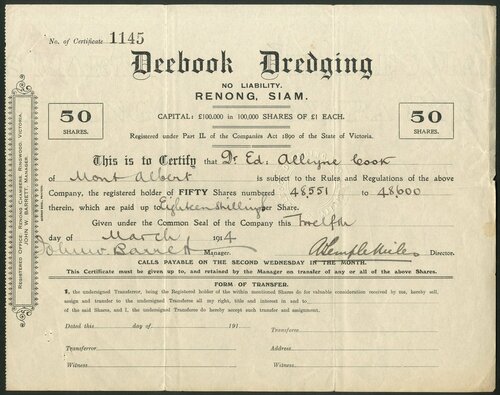 No. of Certificate 1145
Deebook Dredging
NO LIABILITY.
RENONG, SIAM.
CAPITAL: £100,000 in 100,000 SHARES OF £1 EACH.
50
SHARES.
50
SHARES.
Registered under Part II. of the Companies Act 1890 of the State of Victoria.
This is to Certify that Dr Ed: Alleyne Cook
of Mont Albert is subject to the Rules and Regulations of the above
Company, the registered holder of FIFTY Shares numbered 48,551 to 48,600
therein, which are paid up to Eighteen shillings per Share.
Given under the Common Seal of the Company this Twelfth
day of March 1914
John W Barrett Manager. Director.
CALLS PAYABLE ON THE SECOND WEDNESDAY IN THE MONTH.
This Certificate must be given up to, and retained by the Manager on transfer of any or all of the above Shares.
FORM OF TRANSFER.
I, the undersigned Transferror, being the Registered holder of the within mentioned Shares do for valuable consideration received by me, hereby sell,
assign and transfer to the undersigned Transferree all my right, title and interest in and to
of the said Shares, and I, the undersigned Transferree do hereby accept such transfer and assignment.
Dated this day of 191
Transferree
Transferror
Address
Witness
Witness
REGISTERED OFFICE: RENONG COLLIERIES, RINGWOOD, VICTORIA.
JOHN W. BARRETT, MANAGER.